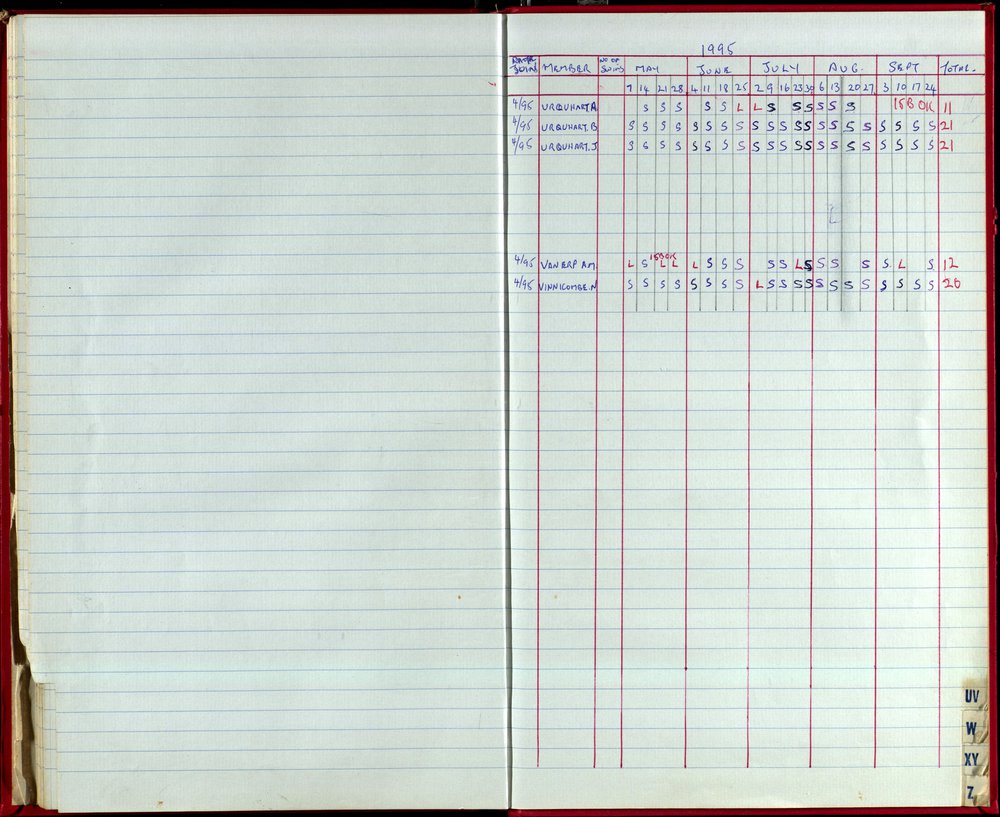 1995
DATE JOINED MEMBER NO OF SWIMS MAY JUNE JULY AUG. SEPT TOTAL.
7 14 21 28 4 11 18 25 2 9 16 23 30 6 13 20 27 3 10 17 24
4/95 URQUHART A. S S S S S L L S S S S S S 15B OK 11
4/95 URQUHART. B S S S S S S S S S S S S S S S S S S S S S 21
4/95 URQUHART. J S S S S S S S S S S S S S S S S S S S S S 21
L
15B OK
4/95 VAN ERP A.M. L S L L L S S S S S L S S S S S L S 12
4/95 VINNICOMBE. N S S S S S S S S L S S S S S S S S S S S S 20
UV
W
XY
Z